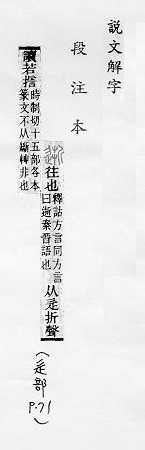 說文解字
段注本
往也
釋詁方言同方言
曰逝秦晉語也
从辵折聲
讀若誓
時制切十五部各本
篆文不从斷艸非也
(辵部 P.71)